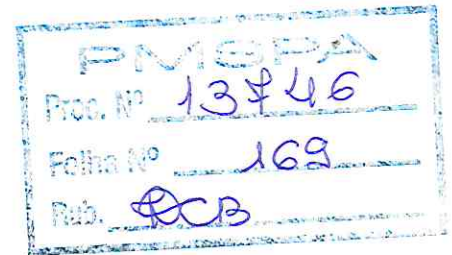 PMSPA
Proc. Nº 13746
Folha Nº 169
Rub. RCB